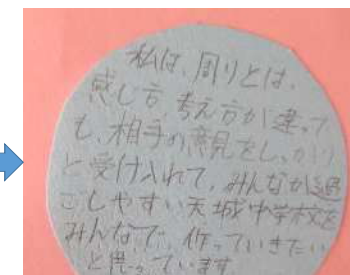 私は、周りとは、
感じ方、考え方が違って
も、相手の意見をしっかり
と受け入れて、みんなが過
ごしやすい天城中学校を
みんなで、作っていきたい
と思っています